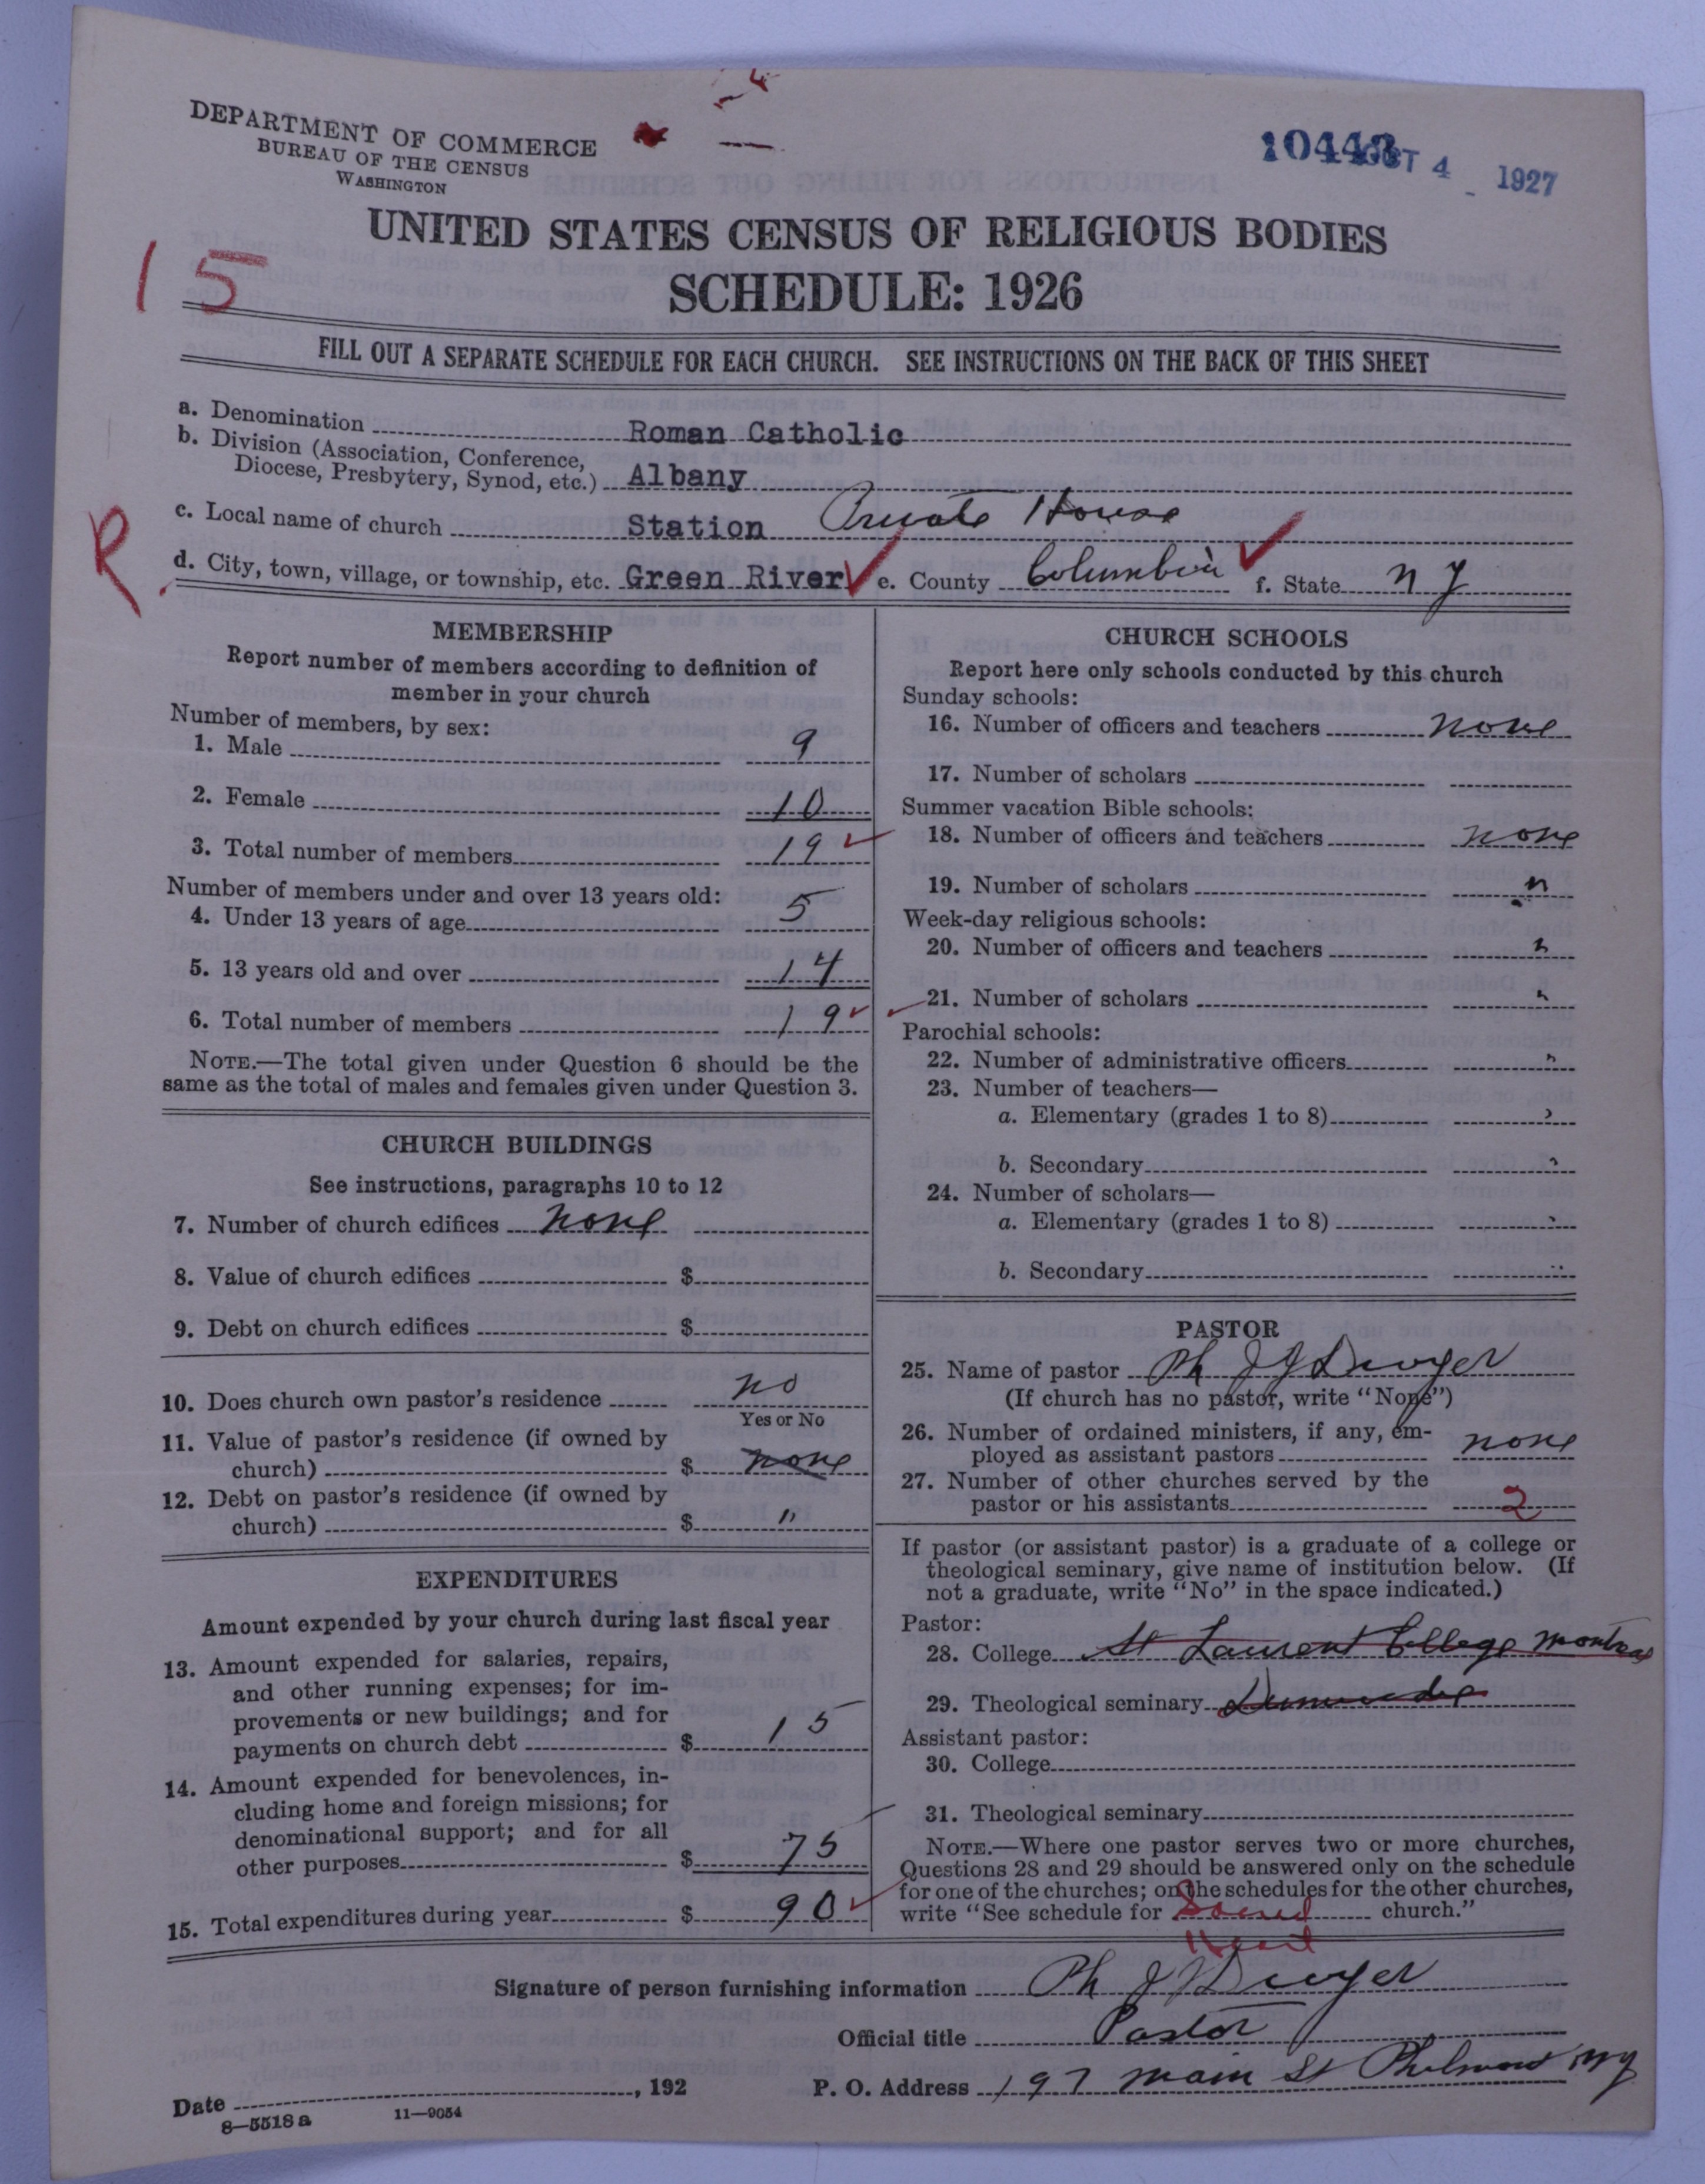 DEPARTMENT OF COMMERCE
BUREAU OF THE CENSUS
WASHINGTON
10443 OCT 4 1927
UNITED STATES CENSUS OF RELIGIOUS BODIES
SCHEDULE: 1926
15
FILL OUT A SEPARATE SCHEDULE FOR EACH CHURCH. SEE INSTRUCTIONS ON THE BACK OF THIS SHEET
a. Denomination Roman Catholic
b. Division (Association, Conference,
Diocese, Presbytery, Synod, etc.) Albany
c. Local name of church Station Private House
R.
d. City, town, village, or township, etc. Green River e. County Columbia f. State N Y
MEMBERSHIP
Report number of members according to definition of
member in your church
Number of members, by sex:
1. Male 9
2. Female 10
3. Total number of members 19
Number of members under and over 13 years old:
4. Under 13 years of age 5
5. 13 years old and over 14
6. Total number of members 19
NOTE.—The total given under Question 6 should be the
same as the total of males and females given under Question 3.
CHURCH BUILDINGS
See instructions, paragraphs 10 to 12
7. Number of church edifices none
8. Value of church edifices $
9. Debt on church edifices $
10. Does church own pastor's residence no
Yes or No
11. Value of pastor's residence (if owned by
church) $ none
12. Debt on pastor's residence (if owned by
church) $ "
EXPENDITURES
Amount expended by your church during last fiscal year
13. Amount expended for salaries, repairs,
and other running expenses; for im-
provements or new buildings; and for
payments on church debt $ 15
14. Amount expended for benevolences, in-
cluding home and foreign missions; for
denominational support; and for all
other purposes $ 75
15. Total expenditures during year $ 90
CHURCH SCHOOLS
Report here only schools conducted by this church
Sunday schools:
16. Number of officers and teachers none
17. Number of scholars
Summer vacation Bible schools:
18. Number of officers and teachers none
19. Number of scholars "
Week-day religious schools:
20. Number of officers and teachers "
21. Number of scholars "
Parochial schools:
22. Number of administrative officers "
23. Number of teachers—
a. Elementary (grades 1 to 8) "
b. Secondary "
24. Number of scholars—
a. Elementary (grades 1 to 8) "
b. Secondary "
PASTOR
25. Name of pastor Ph J J Dwyer
(If church has no pastor, write "None")
26. Number of ordained ministers, if any, em-
ployed as assistant pastors none
27. Number of other churches served by the
pastor or his assistants 2
If pastor (or assistant pastor) is a graduate of a college or
theological seminary, give name of institution below. (If
not a graduate, write "No" in the space indicated.)
Pastor:
28. College St Laurent College Montreal
29. Theological seminary
Assistant pastor:
30. College
31. Theological seminary
NOTE.—Where one pastor serves two or more churches,
Questions 28 and 29 should be answered only on the schedule
for one of the churches; on the schedules for the other churches,
write "See schedule for Sacred church."
Heart
Signature of person furnishing information Ph J J Dwyer
Official title Pastor
Date , 192 P. O. Address 197 Main St Philmont NY
8—5518a 11—9054